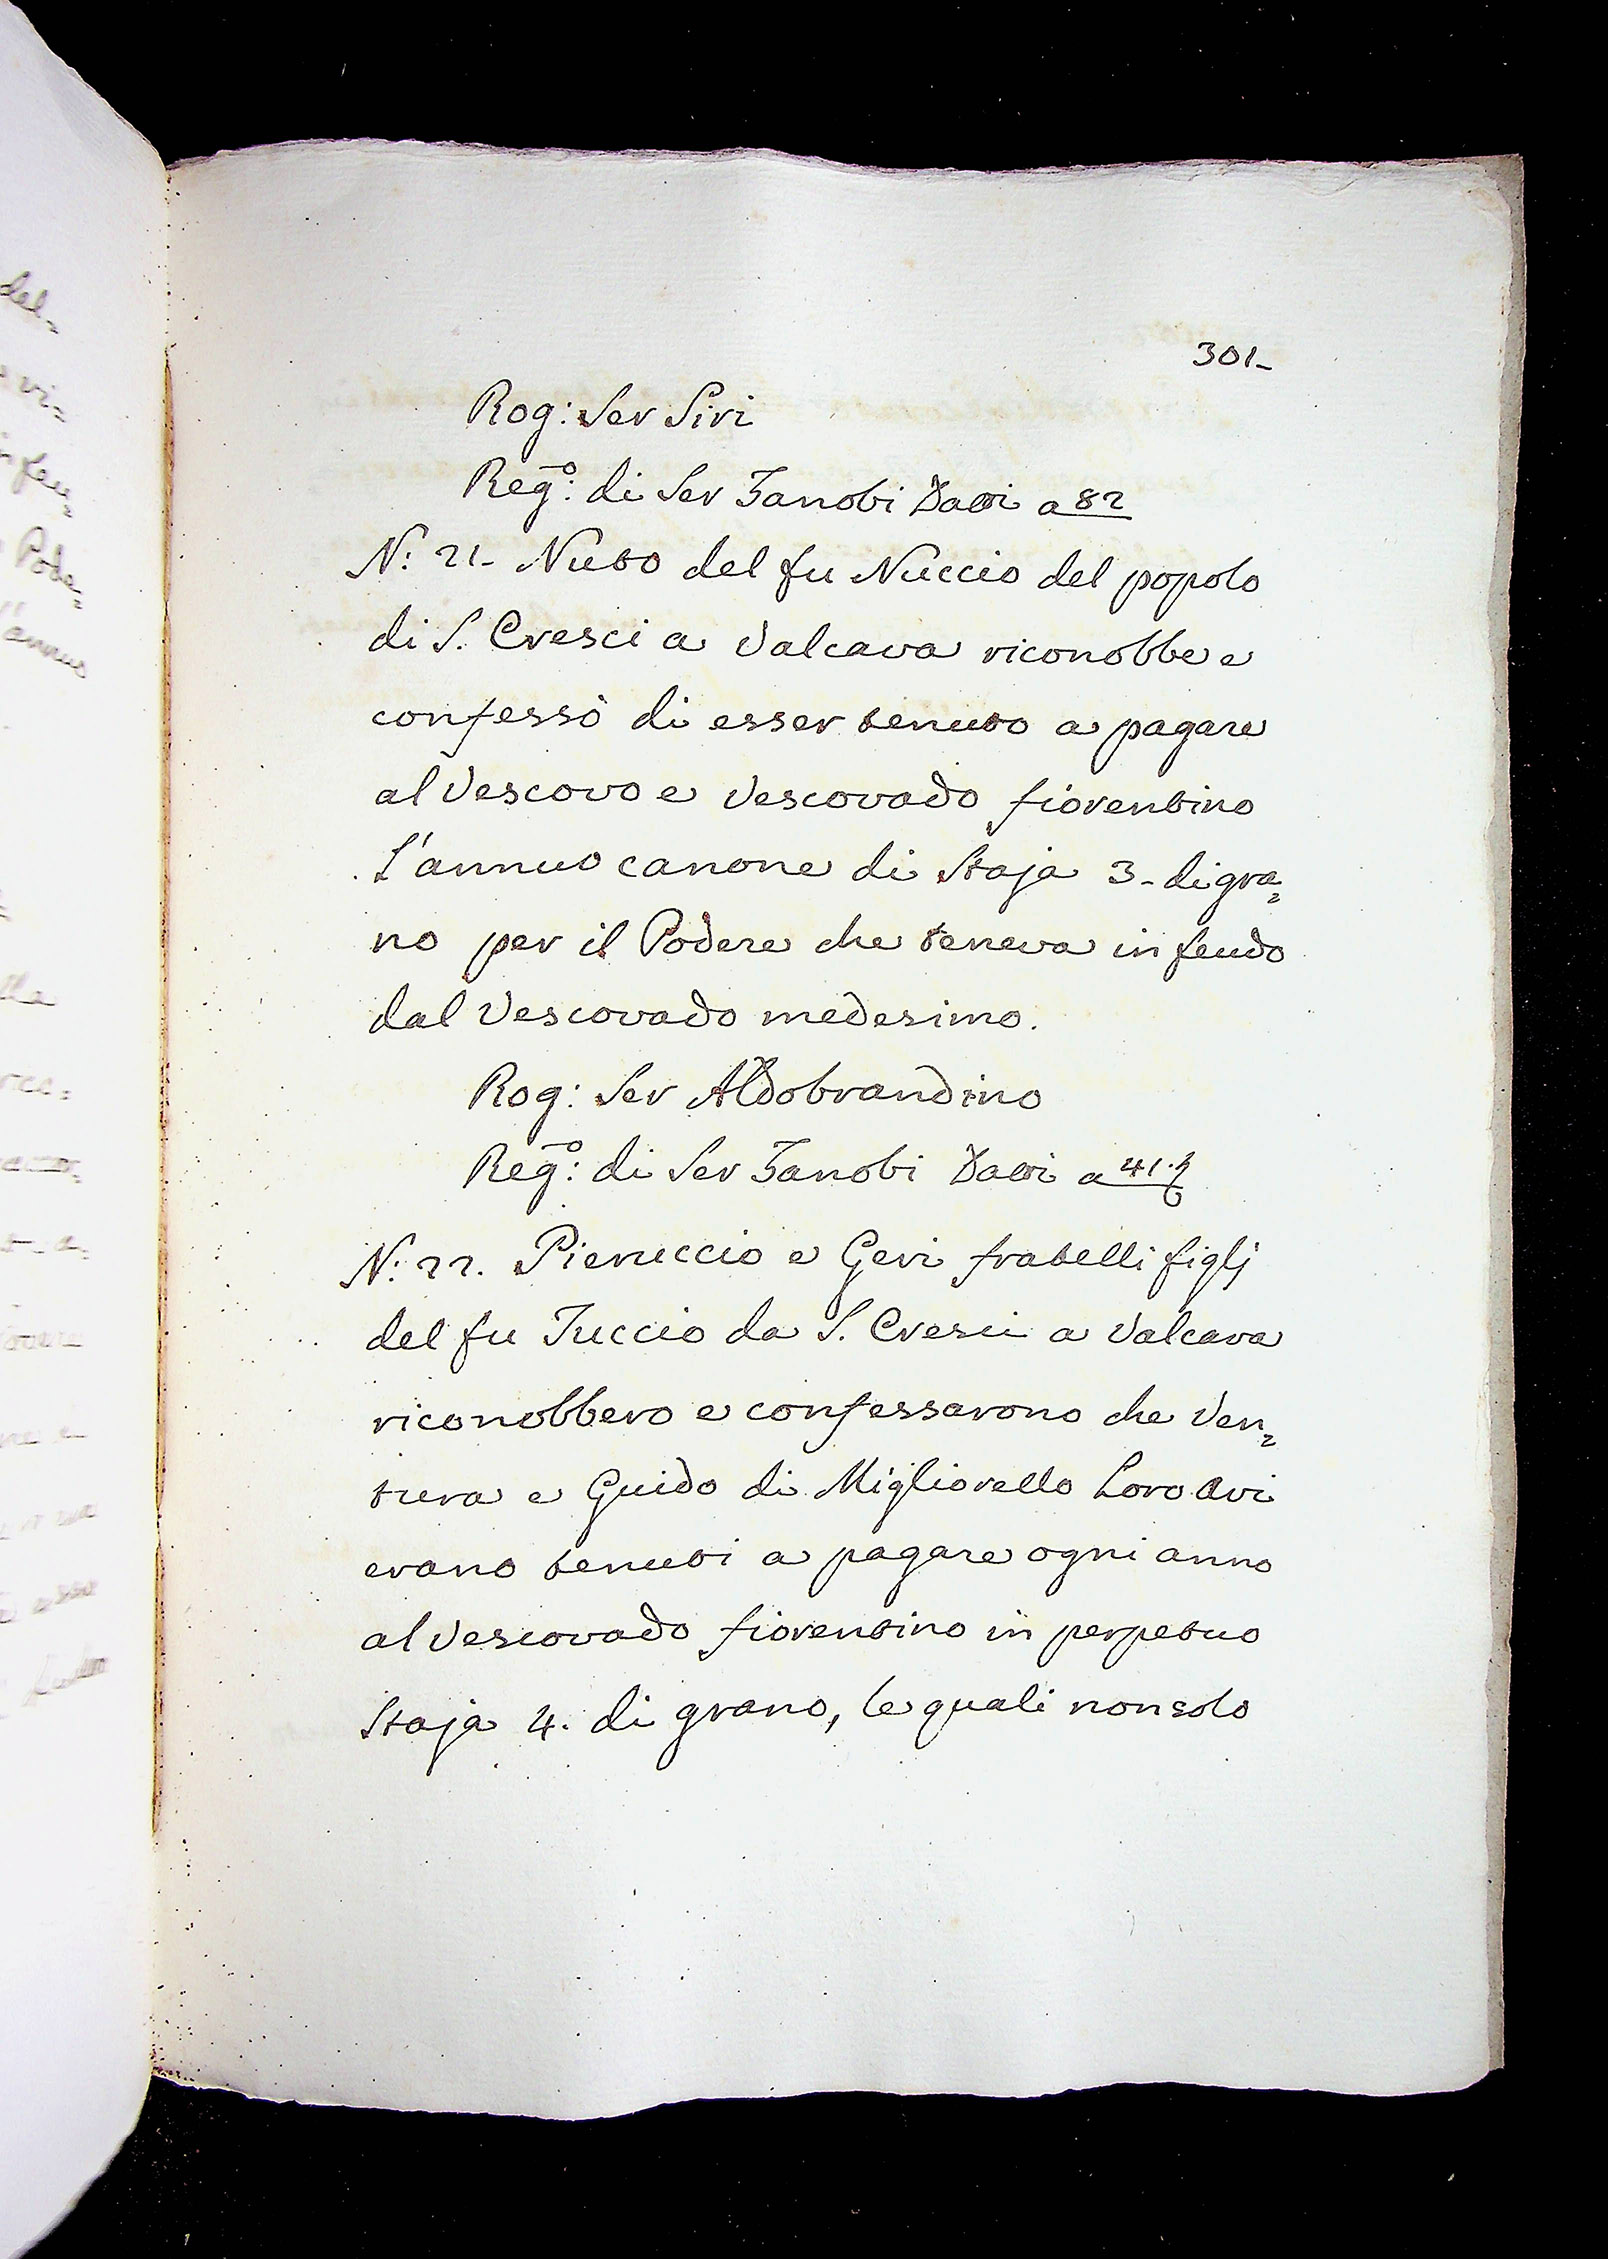 301-
Rog: Ser Siri
Reg.o: di Ser Zanobi a 82
N: 21- Nuto del fu Nuccio del popolo
di S. Cresci a Valcava riconobbe e
confessò di esser tenuto a pagare
al Vescovo e Vescovado fiorentino
l'annuo canone di Staja 3- di gra=
no per il Podere che teneva in feudo
dal Vescovado medesimo.
Rog: Ser Aldobrandino
Reg.o: di Ser Zanobi a 41.
N: 22. Pieruccio e Geri fratelli figlj
del fu Tuccio da S. Cresci a Valcava
riconobbero e confessarono che Ven=
tura e Guido di Migliorello Loro Avi
erano tenuti a pagare ogni anno
al Vescovado fiorentino in perpetuo
Staja 4. di grano, le quali non solo